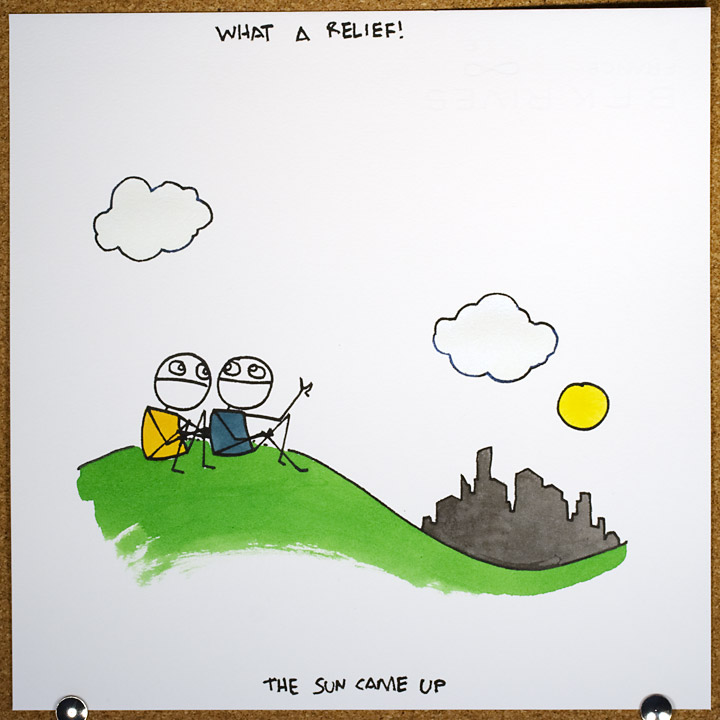 WHAT A RELIEF!
THE SUN CAME UP